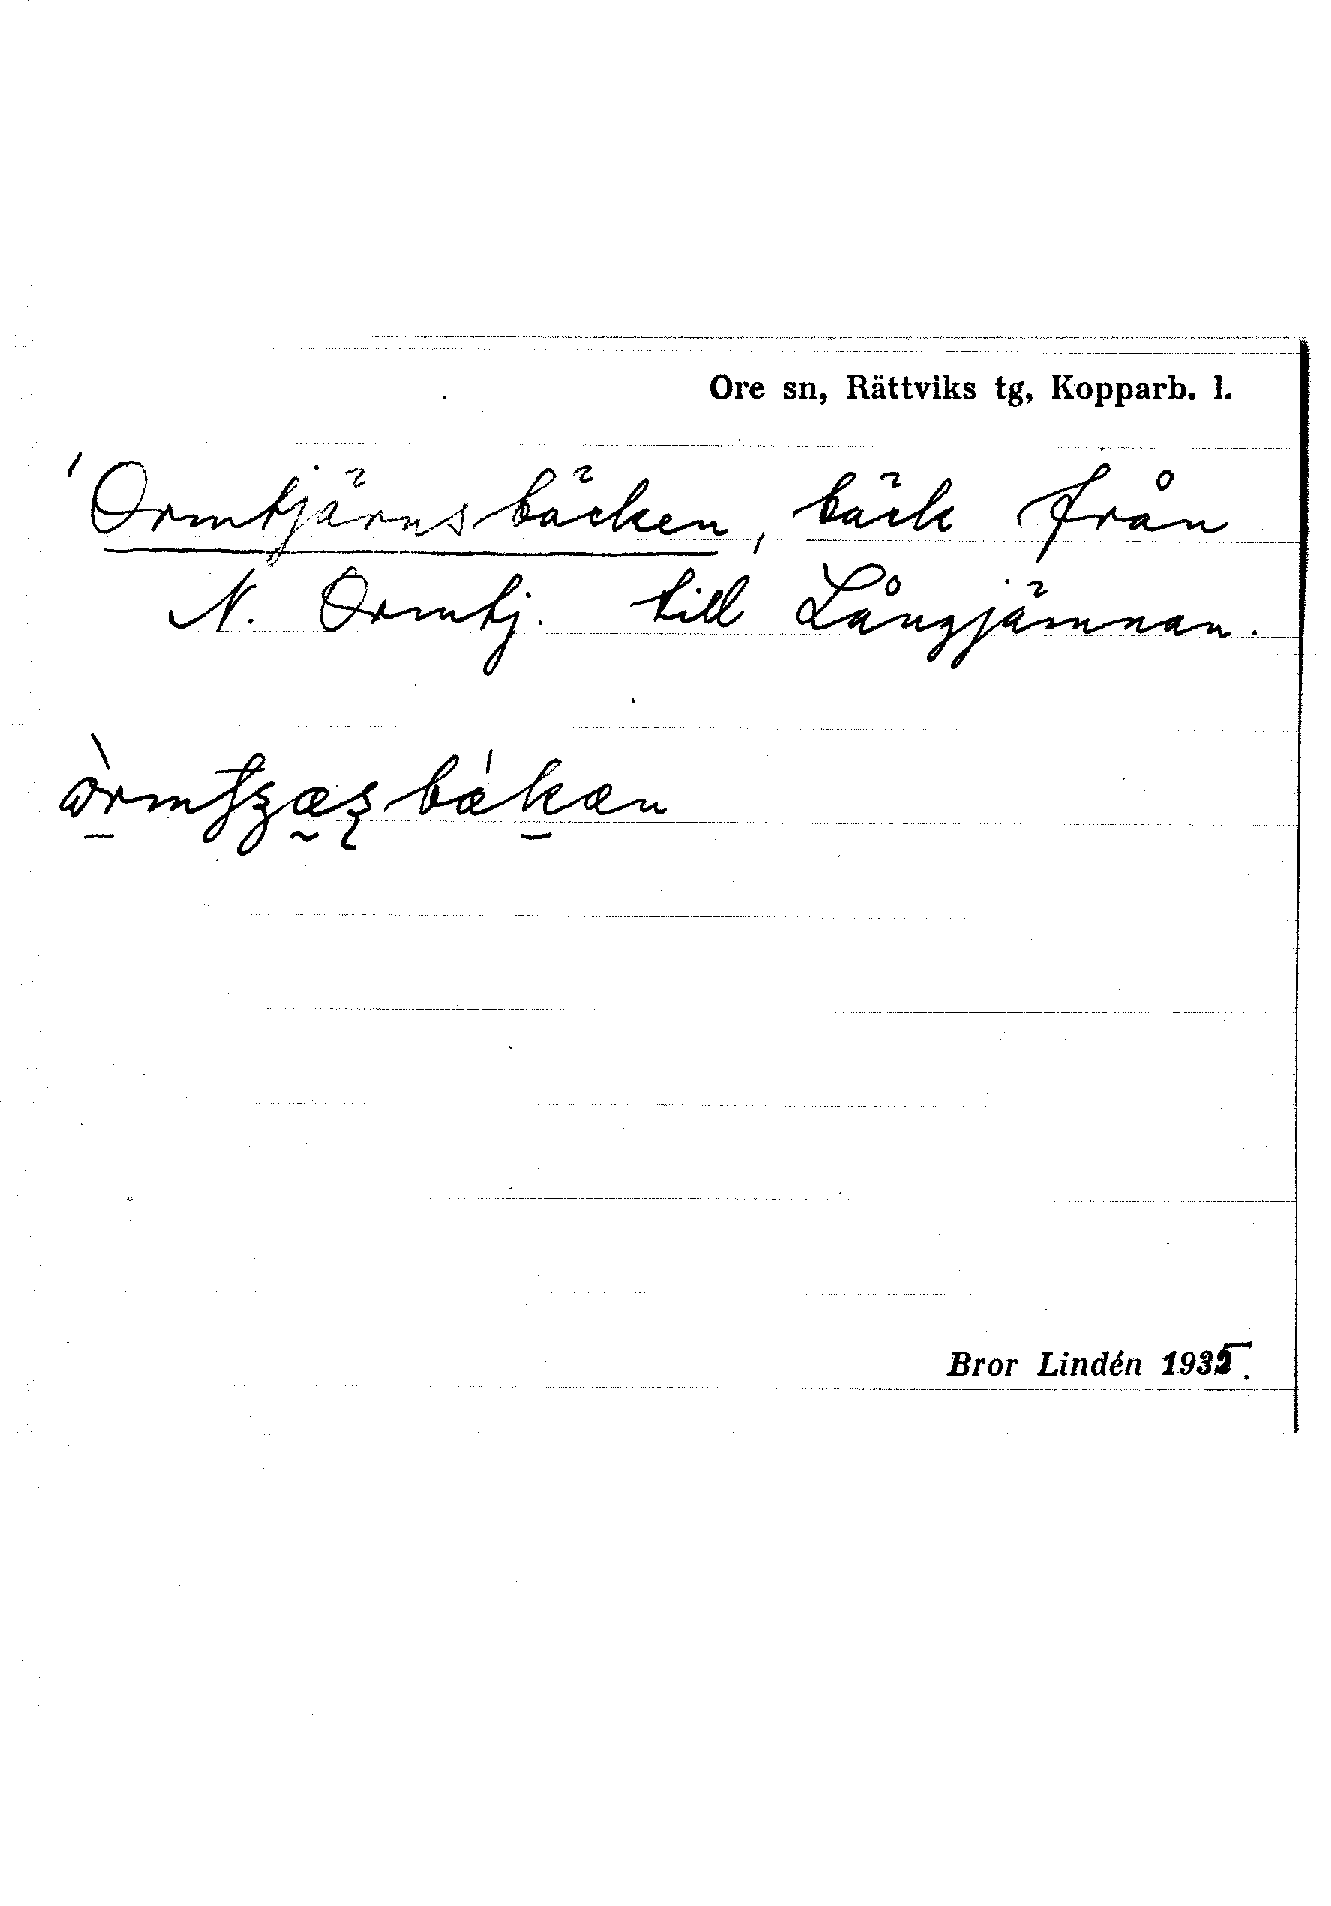 Ore sn, Rättviks tg, Kopparb. l.
'Ormtjärnsbäcken, bäck från
N. Ormtj. till Långjämnan.
Bror Lindén 1935.